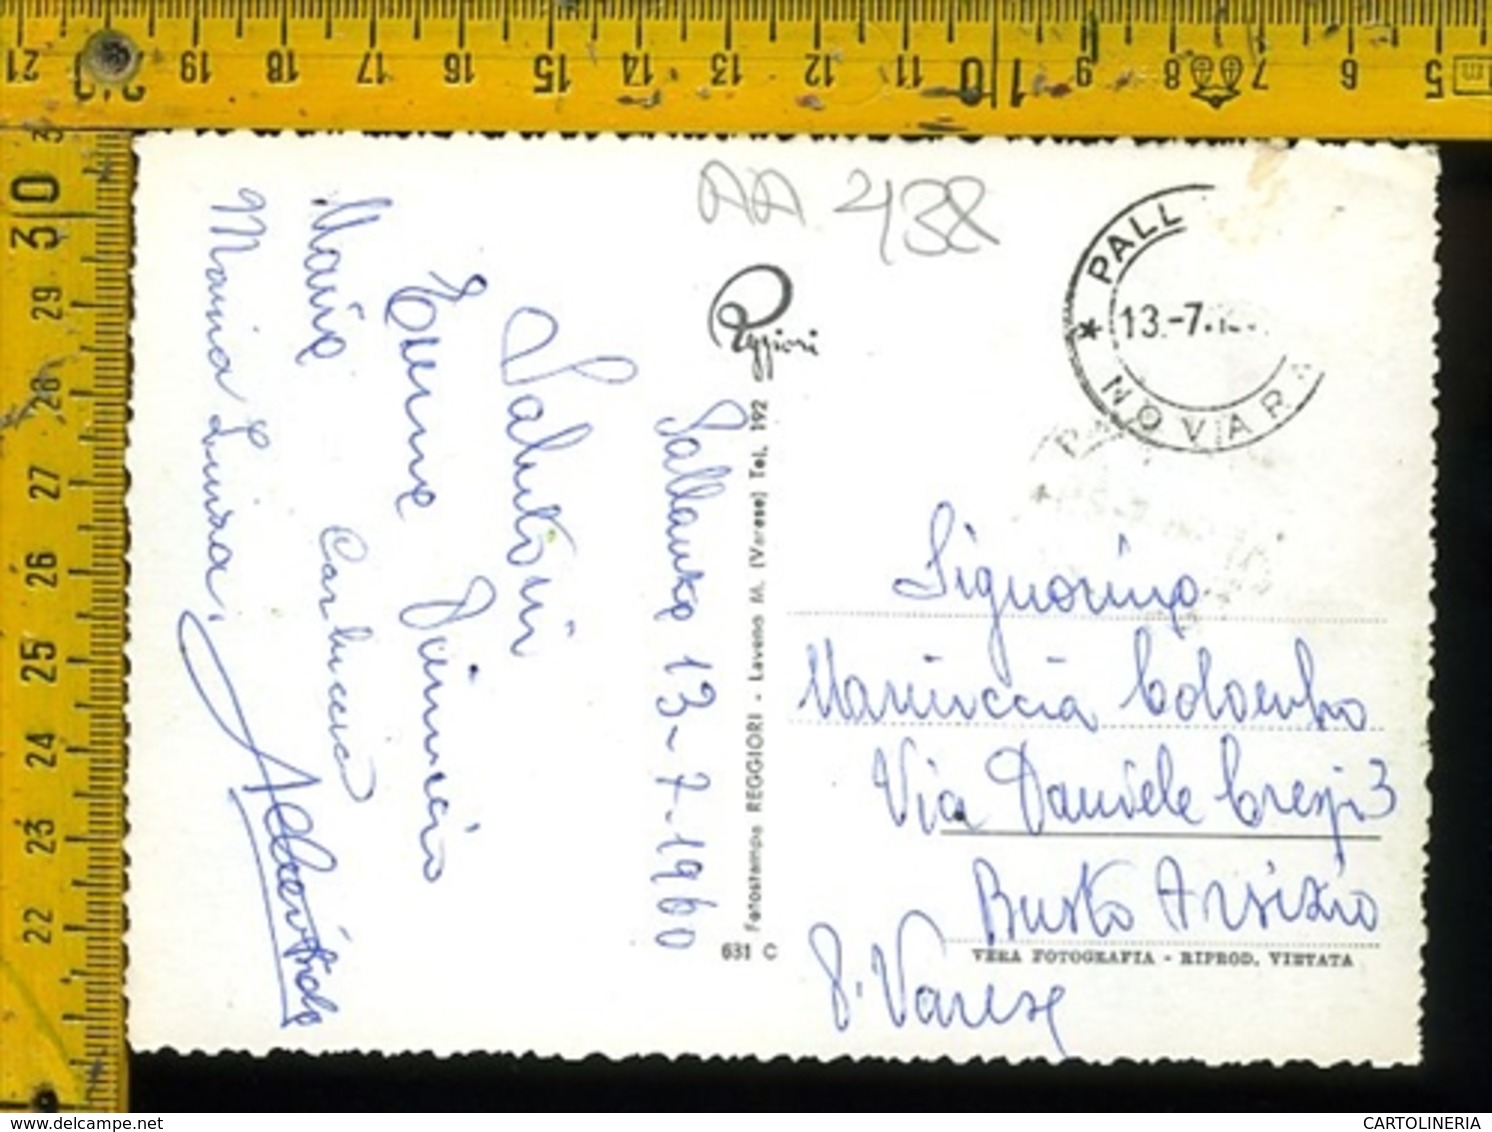 21 20 19 18 17 16 15 14 13 12 11 10 9 8 7 6 5 m
30 29 28 27 26 25 24 23 22
AA 438
PALL
13.-7.
NOVARA
Reggiori
Pallanza 13-7-1960
Saluti
Maria
Carluccia
Maria Luisa.
Fotostampa REGGIORI - Laveno M. (Varese) Tel. 192
631 C
Signorina
Mariuccia Colombo
Via Daniele Crespi 3
Busto Arsizio
P. Varese
VERA FOTOGRAFIA - RIPROD. VIETATA
CARTOLINERIA